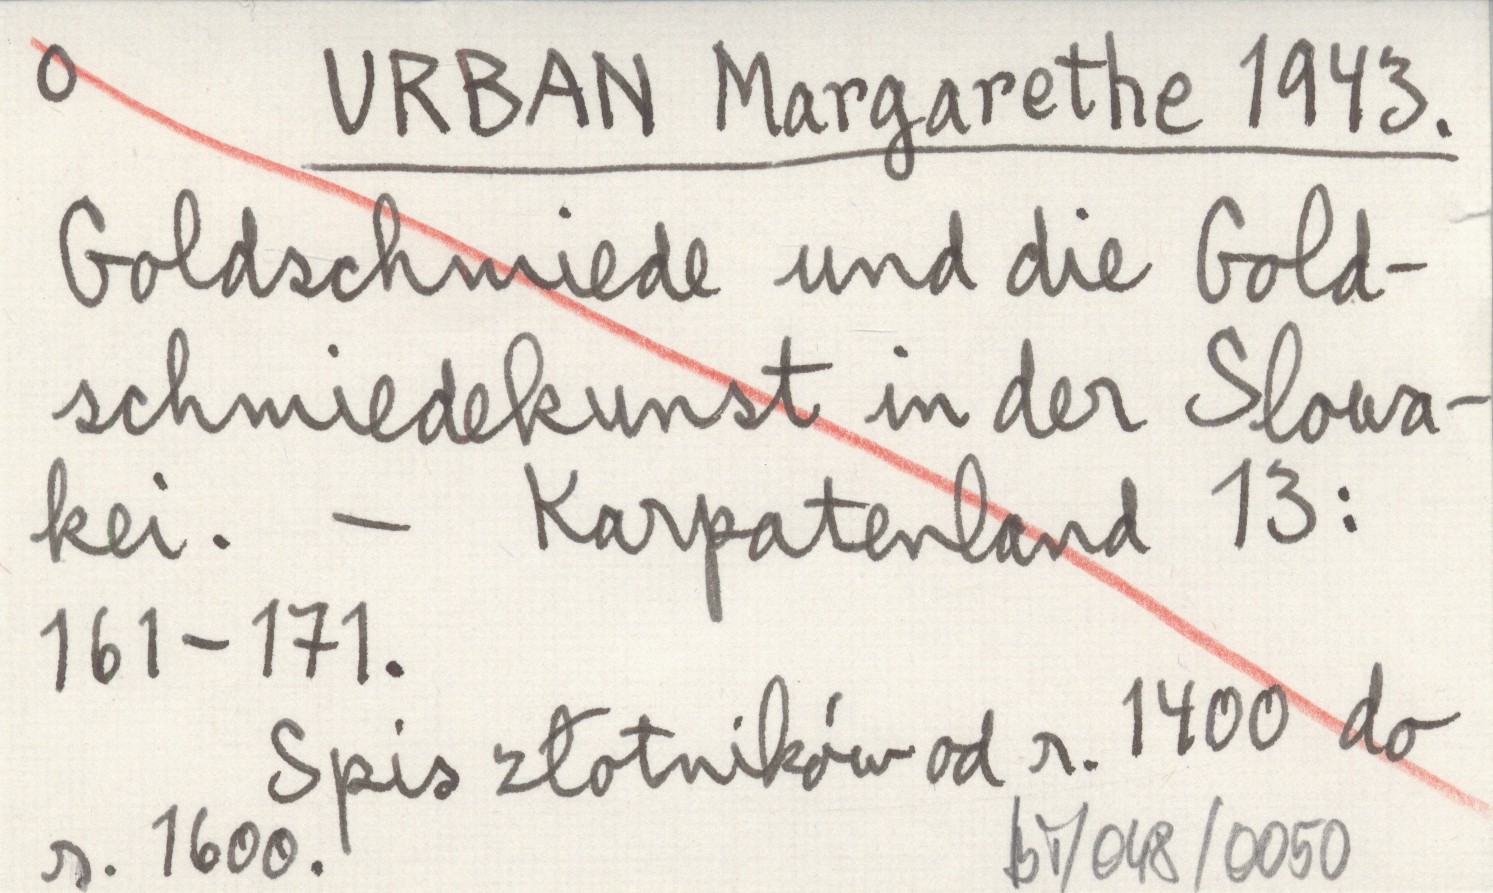 O URBAN Margarethe 1943.
Goldschmiede und die Gold-
schmiedekunst in der Slowa-
kei. — Karpatenland 13:
161-171.
Spis złotników od r. 1400 do
r. 1600.
bi/048/0050